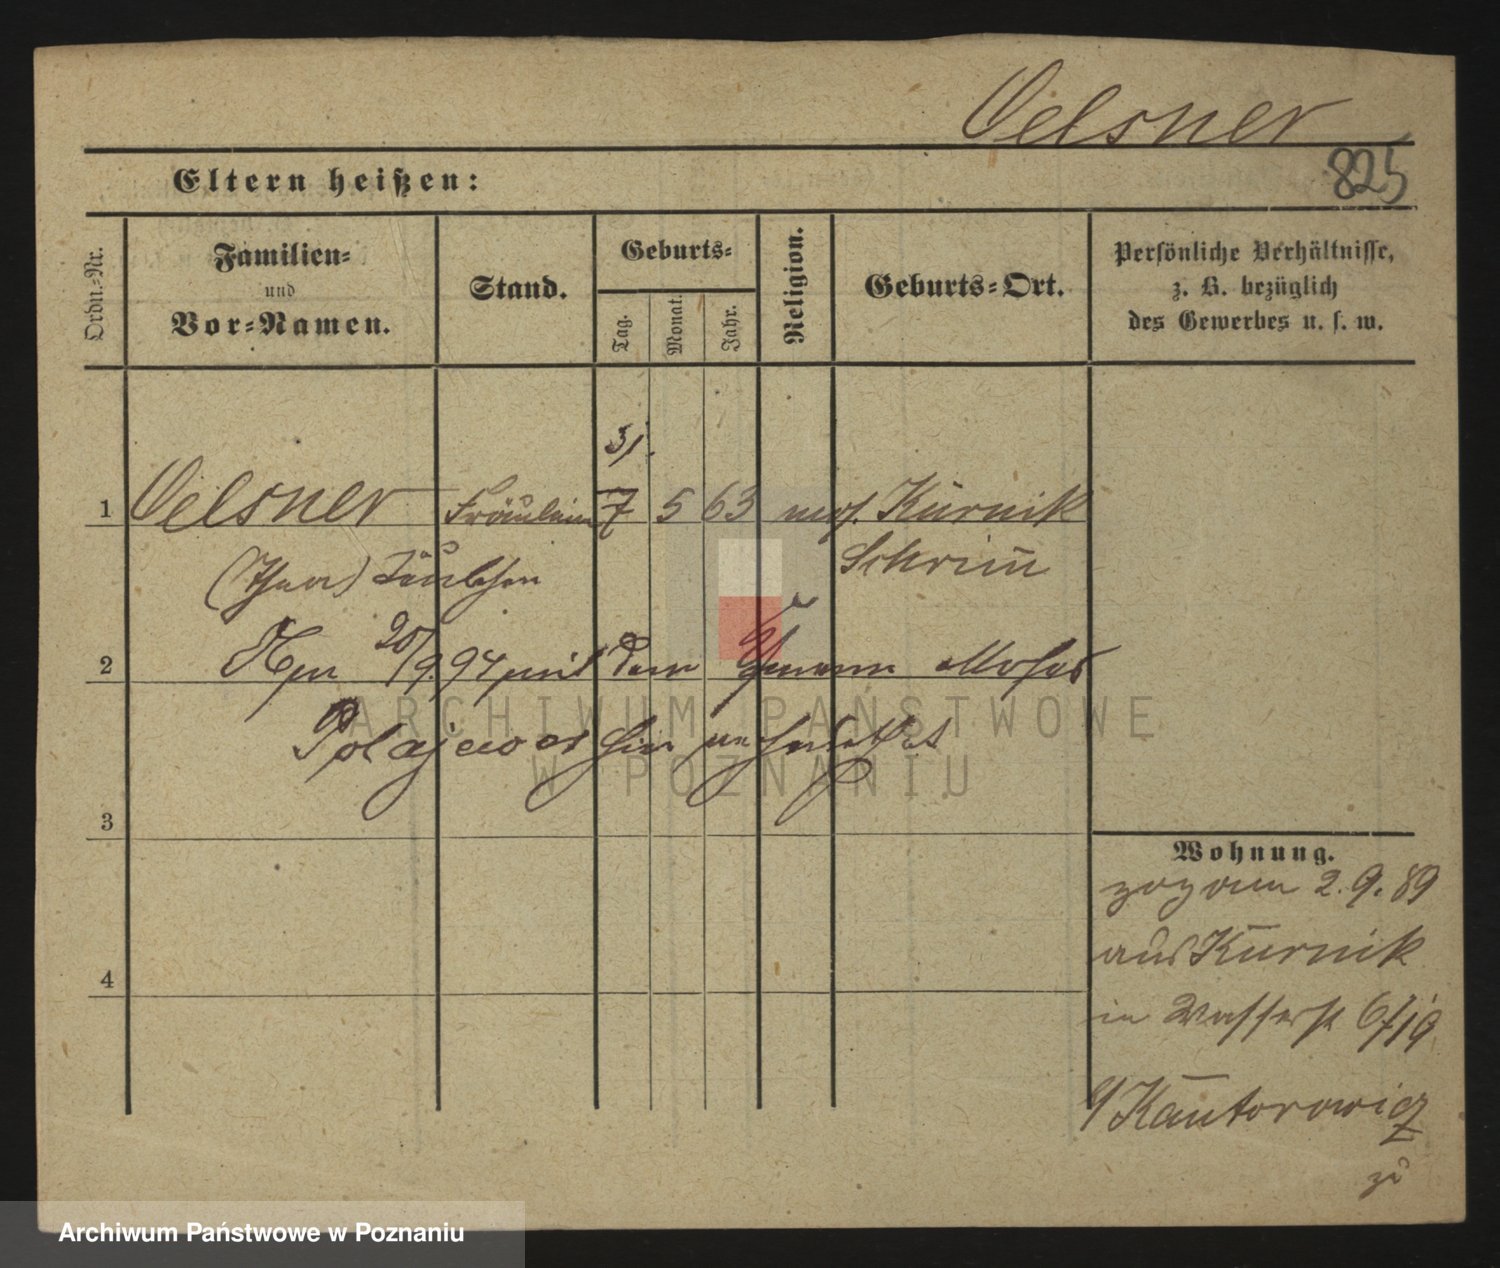 Oelsner
825
Eltern heißen:
Ordn.-Nr.
Familien-
und
Vor-Namen.
Stand.
Geburts-
Tag.
Monat.
Jahr.
Religion.
Geburts-Ort.
Persönliche Verhältnisse,
z. B. bezüglich
des Gewerbes u. s. w.
31.
1 Oelsner Fräulein 7 5 63 mos. Kurnik
Schrimm
2 20/9.94 mit dem Moses
ARCHIWUM PAŃSTWOWE
Polajewer hier
W POZNANIU
3
Wohnung.
zog am 2.9.89
aus Kurnik
4
in Wasserst
b/ Kantorowicz
zu
Archiwum Państwowe w Poznaniu